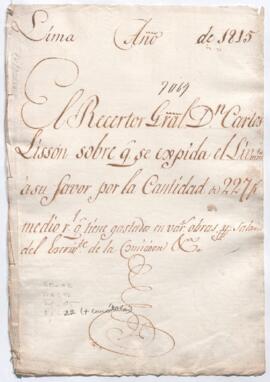 Lima Año de 1815
7069
El Receptor Gral Dn Carlos
Lissón sobre q se expida el
a su favor por la Cantidad de 227 p
medio rl q tiene gastados en var obras, y
del de la Comision
22 (+ carátula)